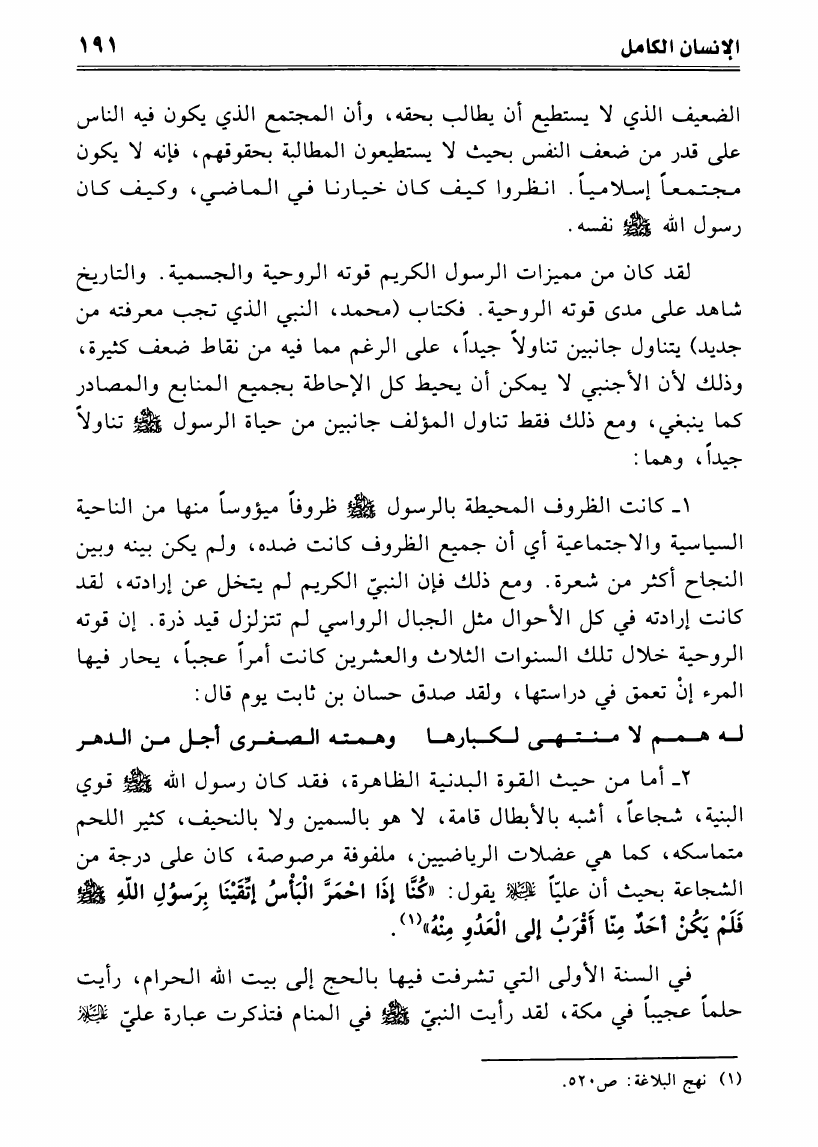 الإنسان الكامل ١٩١
الضعيف الذي لا يستطيع أن يطالب بحقه، وأن المجتمع الذي يكون فيه الناس
على قدر من ضعف النفس بحيث لا يستطيعون المطالبة بحقوقهم، فإنه لا يكون
مجتمعاً إسلامياً. انظروا كيف كان خيارنا في الماضي، وكيف كان
رسول الله ﷺ نفسه.
لقد كان من مميزات الرسول الكريم قوته الروحية والجسمية. والتاريخ
شاهد على مدى قوته الروحية. فكتاب (محمد، النبي الذي تجب معرفته من
جديد) يتناول جانبين تناولاً جيداً، على الرغم مما فيه من نقاط ضعف كثيرة،
وذلك لأن الأجنبي لا يمكن أن يحيط كل الإحاطة بجميع المنابع والمصادر
كما ينبغي، ومع ذلك فقط تناول المؤلف جانبين من حياة الرسول ﷺ تناولاً
جيداً، وهما:
١ـ كانت الظروف المحيطة بالرسول ﷺ ظروفاً ميؤوساً منها من الناحية
السياسية والاجتماعية أي أن جميع الظروف كانت ضده، ولم يكن بينه وبين
النجاح أكثر من شعرة. ومع ذلك فإن النبيّ الكريم لم يتخل عن إرادته، لقد
كانت إرادته في كل الأحوال مثل الجبال الرواسي لم تتزلزل قيد ذرة. إن قوته
الروحية خلال تلك السنوات الثلاث والعشرين كانت أمراً عجباً، يحار فيها
المرء إنْ تعمق في دراستها، ولقد صدق حسان بن ثابت يوم قال:
له همم لا منتهى لكبارها وهمته الصغرى أجل من الدهر
٢ـ أما من حيث القوة البدنية الظاهرة، فقد كان رسول الله ﷺ قوي
البنية، شجاعاً، أشبه بالأبطال قامة، لا هو بالسمين ولا بالنحيف، كثير اللحم
متماسكه، كما هي عضلات الرياضيين، ملفوفة مرصوصة، كان على درجة من
الشجاعة بحيث أن عليّاً عليه السلام يقول: «كُنَّا إذَا احْمَرَّ الْبَأْسُ إتَّقَيْنَا بِرَسوُلِ اللّهِ ﷺ
فَلَمْ يَكُنْ أحَدٌ مِنّا أَقْرَبُ إلى الْعَدُوِ مِنْهُ»(١).
في السنة الأولى التي تشرفت فيها بالحج إلى بيت الله الحرام، رأيت
حلماً عجيباً في مكة، لقد رأيت النبيّ ﷺ في المنام فتذكرت عبارة عليّ عليه السلام
(١) نهج البلاغة: ص٥٢٠.